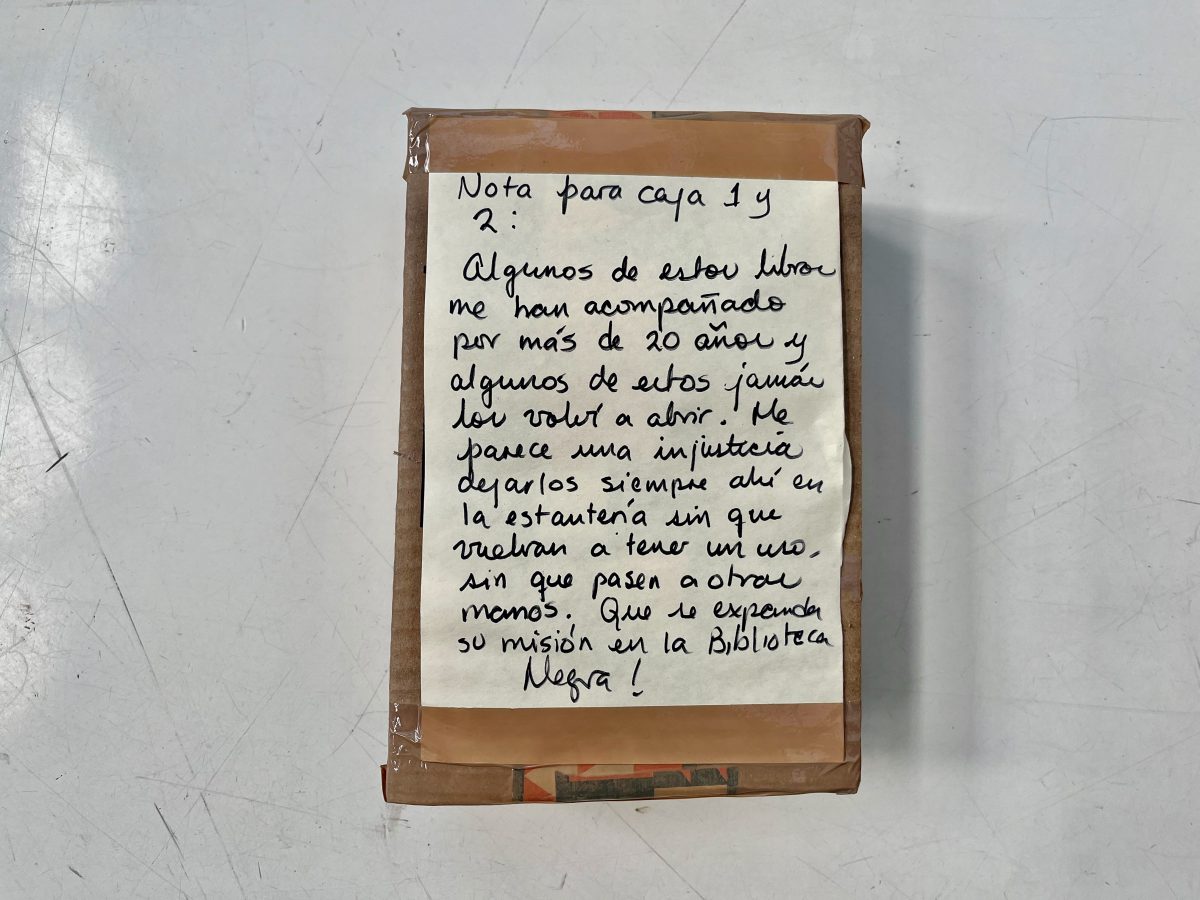 Nota para caja 1 y
2:
Algunos de estos libros
me han acompañado
por más de 20 años y
algunos de estos jamás
los volví a abrir. Me
parece una injusticia
dejarlos siempre ahí en
la estantería sin que
vuelvan a tener un uso,
sin que pasen a otras
manos. Que se expanda
su misión en la Biblioteca
Negra!